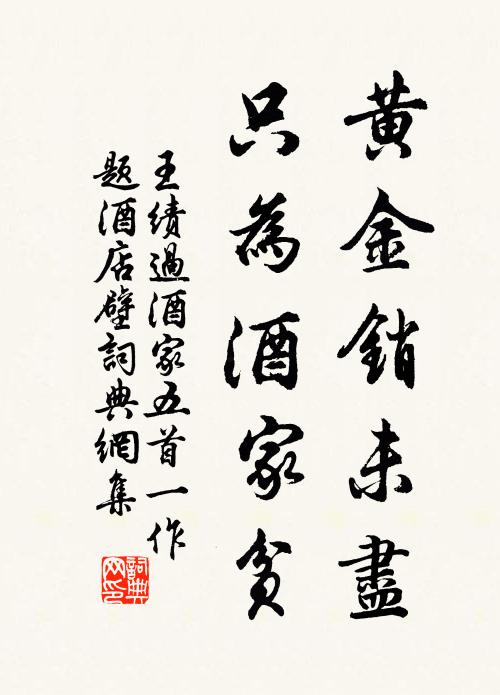 黄金銷未盡
只為酒家貧
王績過酒家五首一作
題酒店壁詞典網集
詞典
网印